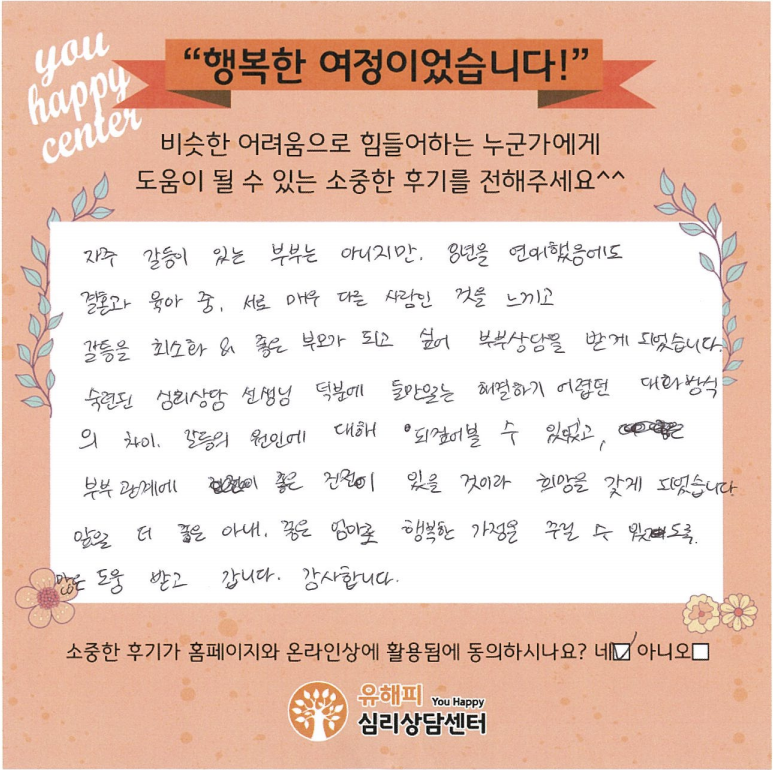 you
happy
center
“행복한 여정이었습니다!”
비슷한 어려움으로 힘들어하는 누군가에게
도움이 될 수 있는 소중한 후기를 전해주세요^^
자주 갈등이 있는 부부는 아니지만, 8년을 연애했음에도
결혼과 육아 중, 서로 매우 다른 사람인 것을 느끼고
갈등을 최소화 & 좋은 부모가 되고 싶어 부부상담을 받게 되었습니다.
숙련된 심리상담 선생님 덕분에 둘만으로는 해결하기 어렵던 대화방식
의 차이, 갈등의 원인에 대해 되짚어볼 수 있었고,
부부관계에 좋은 진전이 있을 것이라 희망을 갖게 되었습니다
앞으로 더 좋은 아내, 좋은 엄마로 행복한 가정을 꾸릴 수 있도록
많은 도움 받고 갑니다. 감사합니다.
소중한 후기가 홈페이지와 온라인상에 활용됨에 동의하시나요? 네☑ 아니오□
유해피 You Happy
심리상담센터